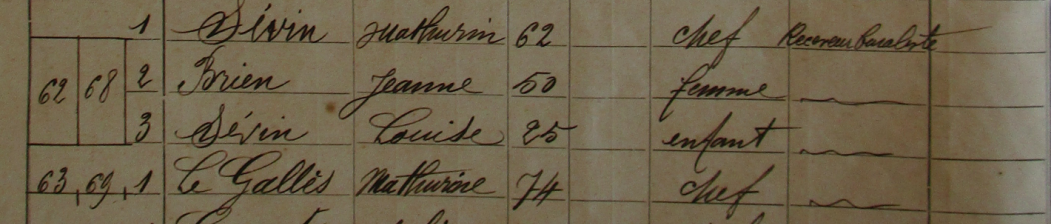 1 Sévin Mathurin 62 chef Receveur buraliste
62 68 2 Brien Jeanne 50 femme
3 Sévin Louise 25 enfant
63 69 1 Le Gallès Mathurine 74 chef